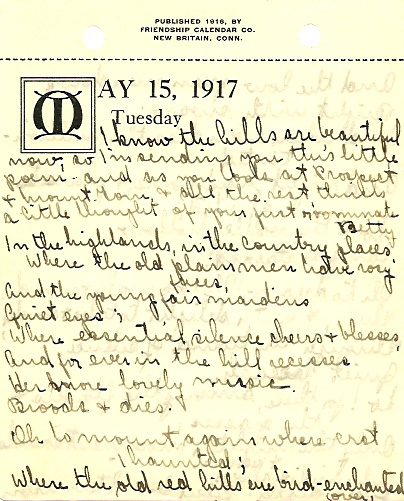 PUBLISHED 1916, BY
FRIENDSHIP CALENDAR CO.
NEW BRITAIN, CONN.
MAY 15, 1917
Tuesday
I know the hills are beautiful
now, so I'm sending you this little
poem - and as you look at Prospect
& Mount Tom, & all the rest think
a little thought of your first roommate
Betty
In the highlands, in the country places,
Where the old plain men have rosy
faces,
And the young fair maidens
Quiet eyes;
Where essential silence cheers & blesses,
And for ever in the hill recesses
Her more lovely music
Broods & dies.
Oh to mount again where erst
I haunted;
Where the old red hills are bird-enchanted
(over)